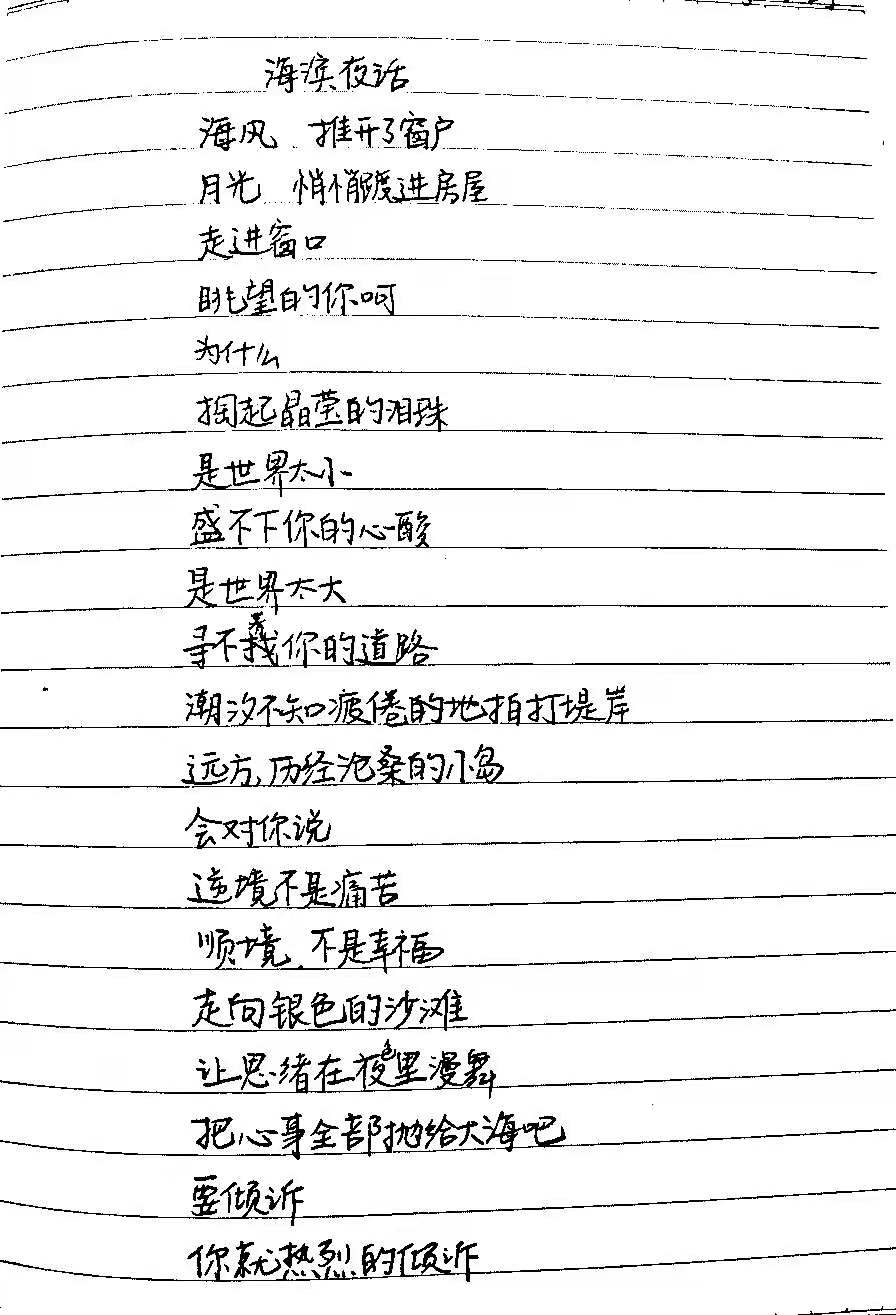 海滨夜话
海风 推开了窗户
月光 悄悄踱进房屋
走进窗口
眺望的你呵
为什么
掏起晶莹的泪珠
是世界太小
盛不下你的心酸
是世界太大
寻不着你的道路
潮汐不知疲倦的地拍打堤岸
远方,历经沧桑的小岛
会对你说
逆境不是痛苦
顺境、不是幸福
走向银色的沙滩
让思绪在夜色里漫舞
把心事全部抛给大海吧
要倾诉
你就热烈的倾诉